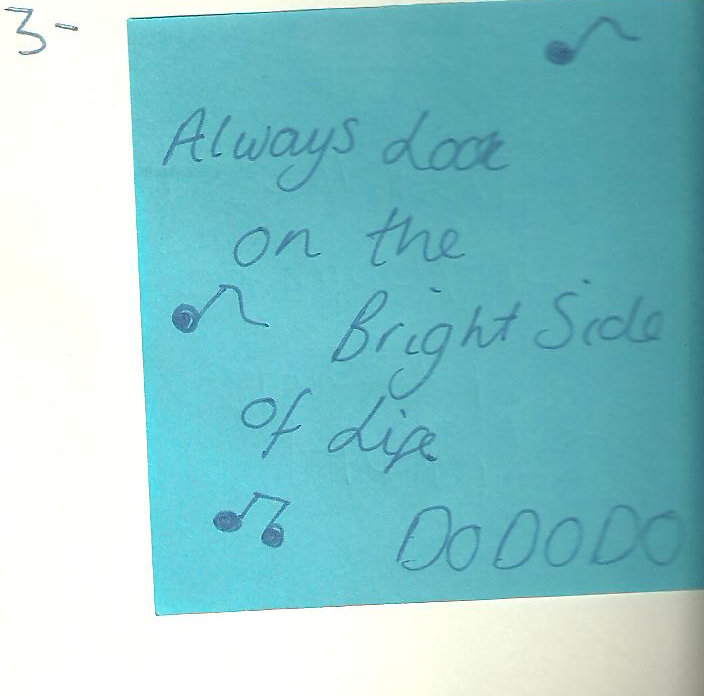 3-
Always Look
on the
Bright Side
of Life
DO DO DO